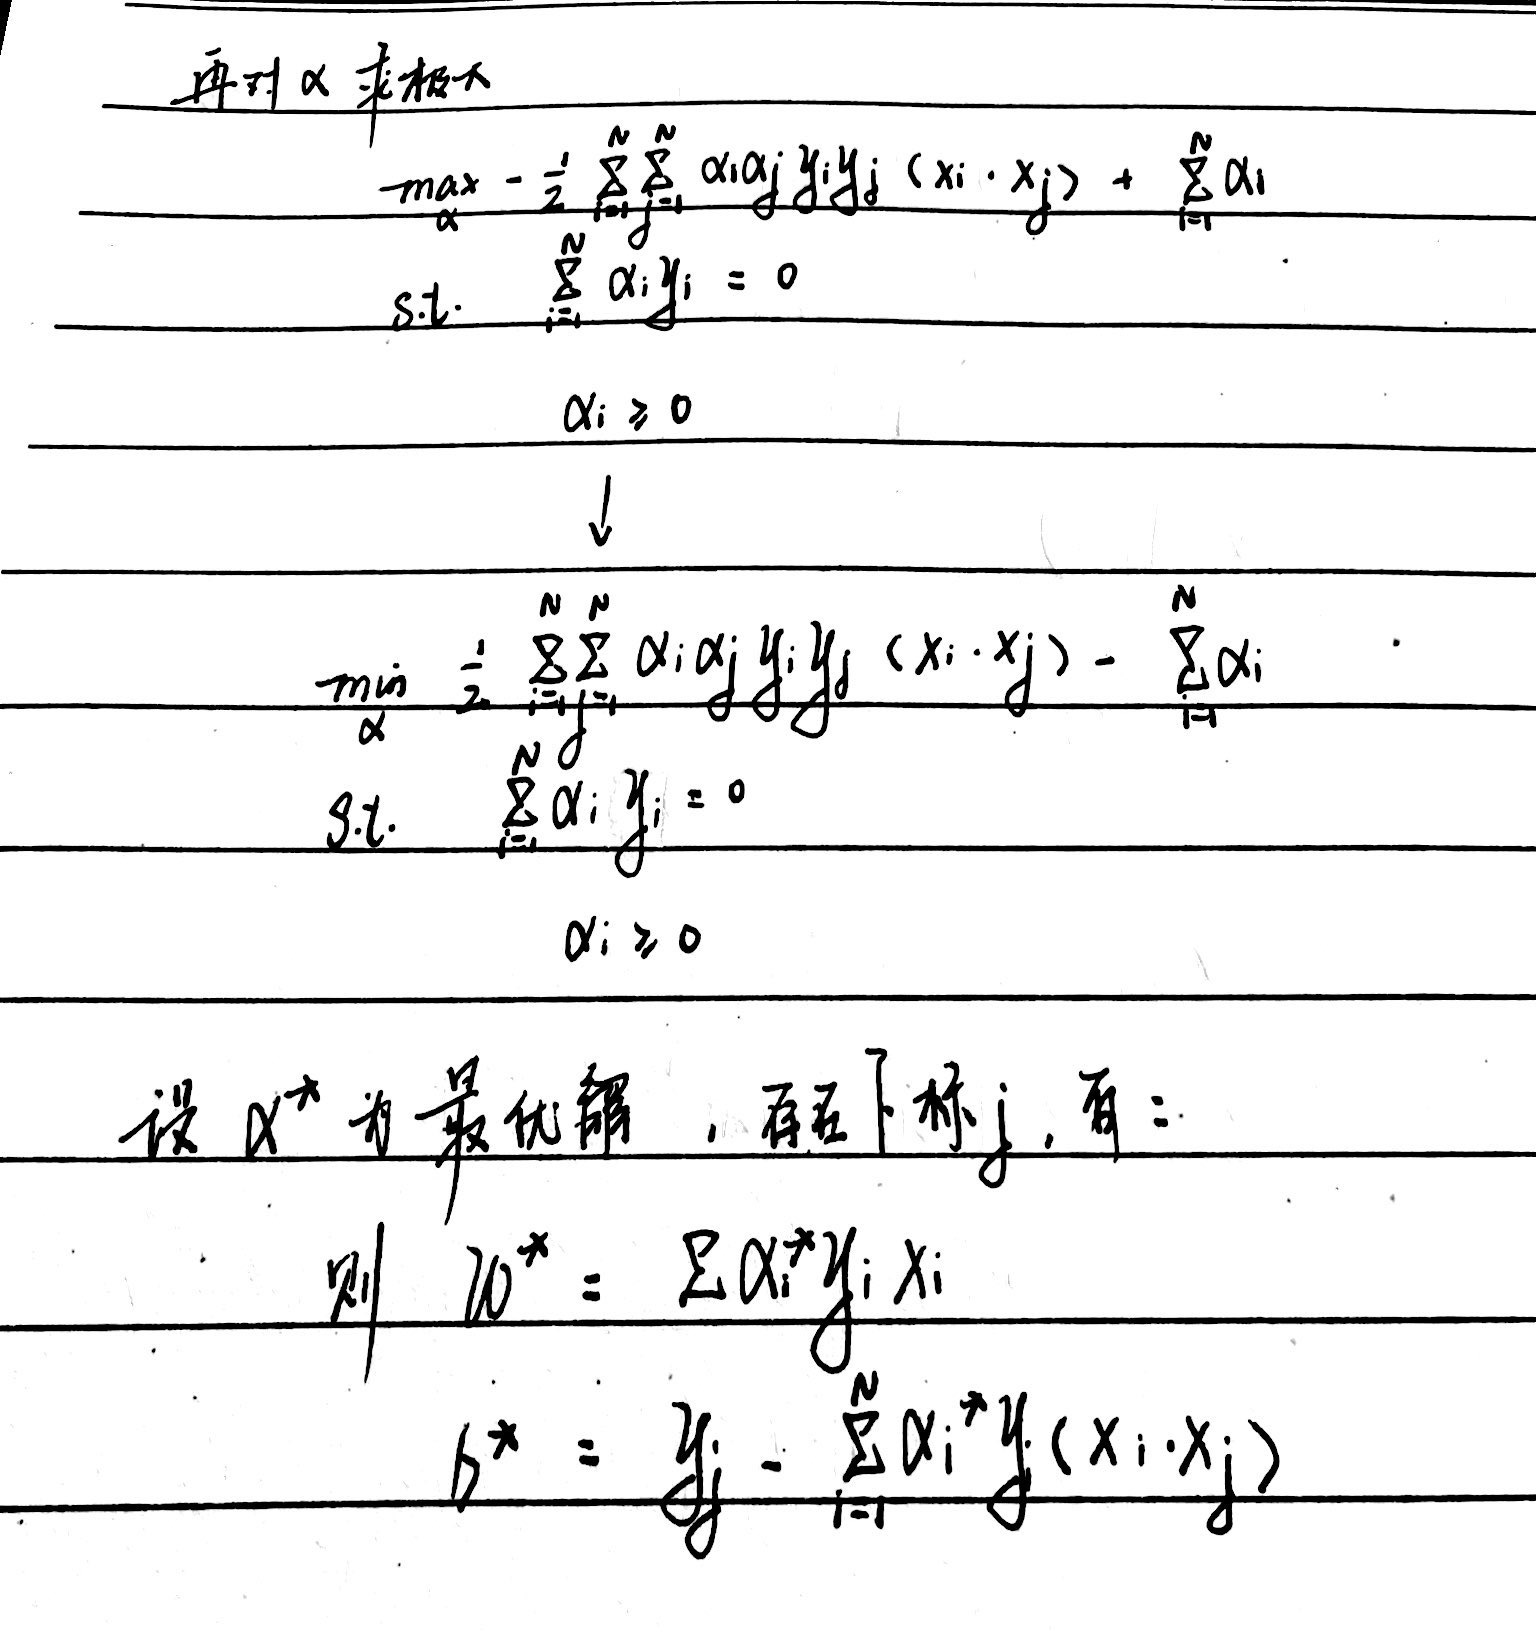 再对 α 求极大
max α - 1/2 Σ_{i=1}^{N} Σ_{j=1}^{N} αiαj yiyj (xi · xj) + Σ_{i=1}^{N} αi
s.t. Σ_{i=1}^{N} αi yi = 0
αi ≥ 0
↓
min α 1/2 Σ_{i=1}^{N} Σ_{j=1}^{N} αi αj yi yj (xi · xj) - Σ_{i=1}^{N} αi
s.t. Σ_{i=1}^{N} αi yi = 0
αi ≥ 0
设 α* 为最优解，存在下标j，有：
则 w* = Σ αi* yi xi
b* = yj - Σ_{i=1}^{N} αi* yj (xi · xj)